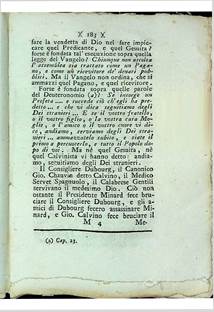 )( 183 )(
fare la vendetta di Dio nel fere impic-
care quel Predicante, e quel Gesuita?
forse è fondata tal' esecuzione sopra quella
legge del Vangelo? Chiunque non ascolta
l'assemblea sia trattato come un Paga-
no, e come un ricevitore de' denari pub-
blici. Ma il Vangelo non ordina, che si
ammazzi quel Pagano, e quel ricevitore.
Forse è fondata sopra quelle parole
del Deuteronomio (a)? Se insorge un
Profeta ... e succede ciò ch'egli ha pre-
detto ... e che vi dica seguitiamo degli
Dei stranieri ... E se il vostro fratello,
o il vostro figlio, o la vostra cara Mo-
glie, o l'amico o il vostro cuore vi di-
co, andiamo, serviamo degli Dei stra-
nieri ... ammazzatelo subito, e siate il
primo a percuoterlo, e tutto il Popolo do-
po di voi. Ma nè quel Gesuita, nè
quel Calvinista vi hanno detto: andia-
mo, seguitiamo degli Dei stranieri.
Il Consigliere Dubourg, il Canonico
Gio. Chauvin detto Calvino, il Medico
Servet Spagnuolo, il Calabrese Gentili
servivano il medesimo Dio. Ciò non
ostante il Presidente Minard fece bru-
ciare il Consigliere Dubourg, e gli a-
mici di Dubourg fecero assassinare Mi-
nard, e Gio. Calvino fece bruciare il
M 4 Me-
(a) Cap. 13.